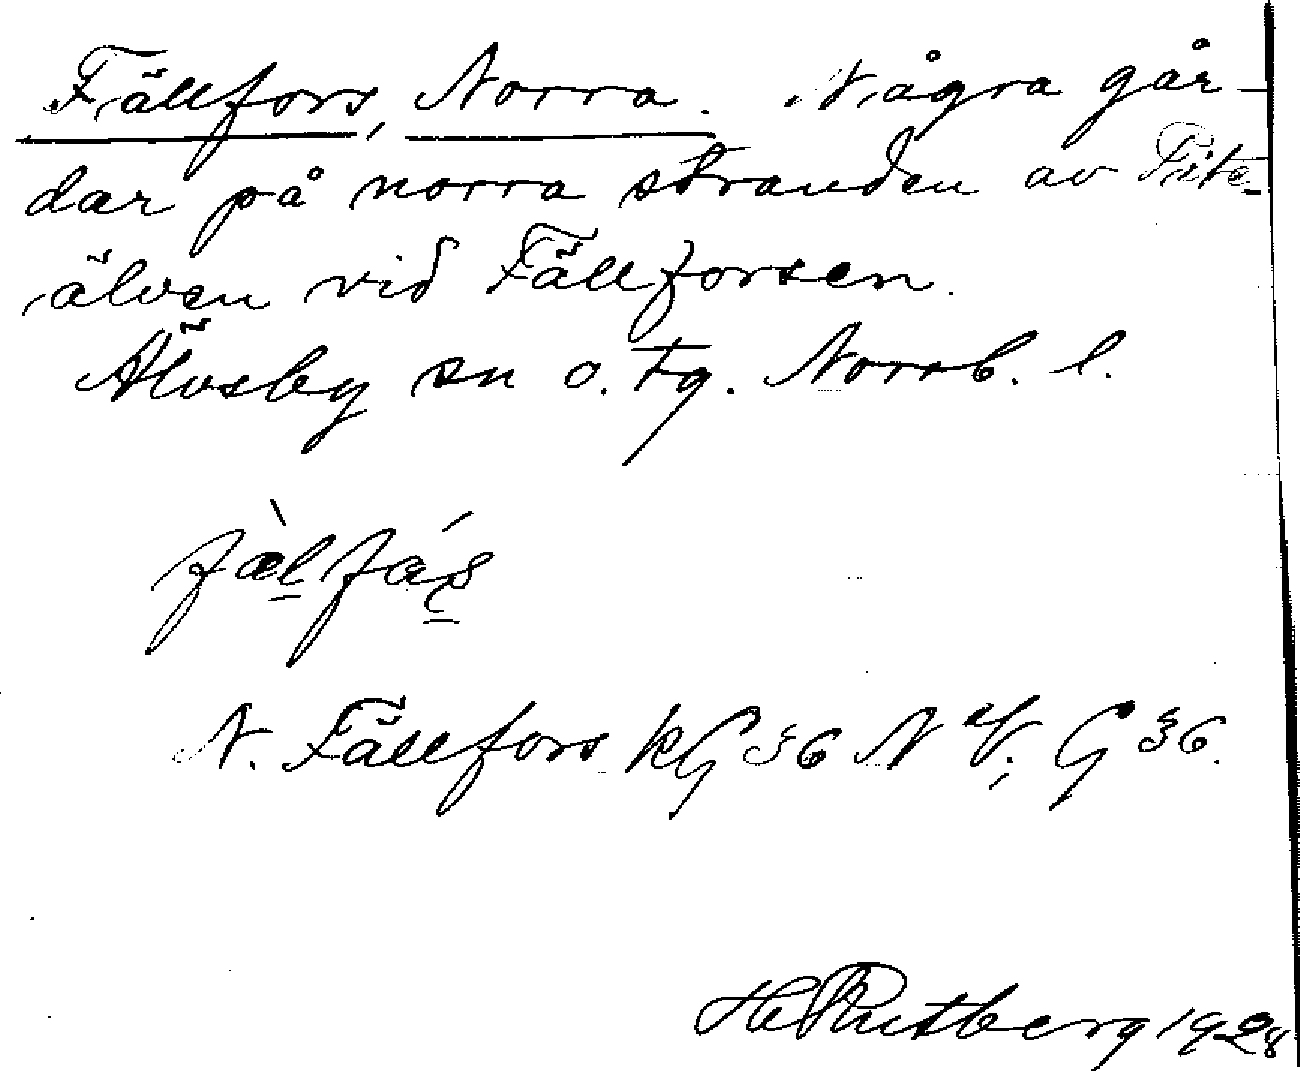 Fällfors, Norra. Några går-
dar på norra stranden av Pite-
älven vid Fällforsen.
Älvsby sn o. tg. Norrb. l.
fæ̀l̲fás̲
N. Fällfors kG 36 N V; G 36.
H Rutberg 1928